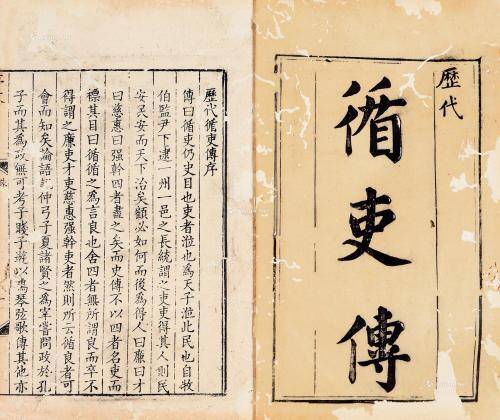 歴代
循吏傳
歷代循吏傳序
傳曰循吏仍史目也吏者涖也為天子涖此民也自牧
伯監尹下逮一州一邑之長統謂之吏吏得其人則民
安民安而天下治矣顧必如何而後為得人曰廉曰才
曰慈惠曰强幹四者盡之矣而史傳不以四者名吏而
標其目曰循循之為言良也舍四者無所謂良而卒不
得謂之廉吏才吏慈惠强幹吏者然則所云循良者可
會而知矣論語記仲弓子夏諸賢之為宰嘗問政於孔
子而其為政無可考子賤子游以鳴琴弦歌傳其他亦